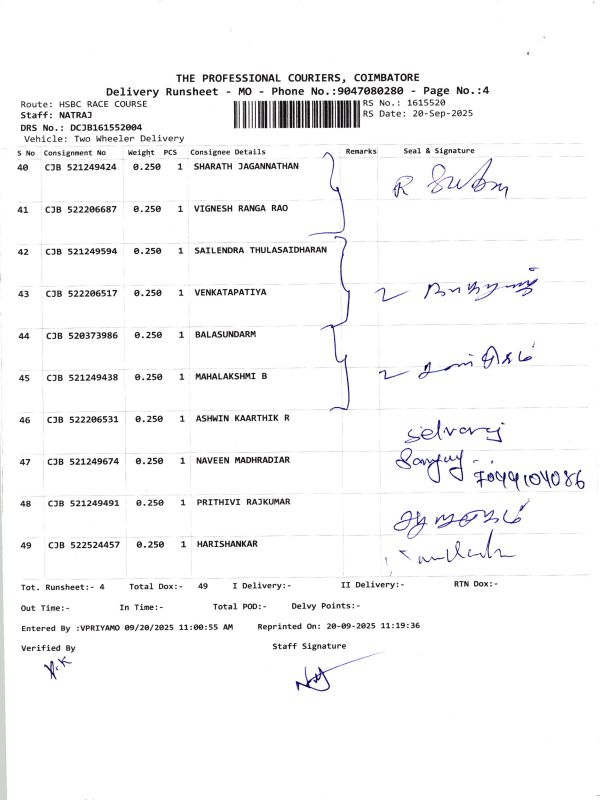 THE PROFESSIONAL COURIERS, COIMBATORE
Delivery Runsheet - MO - Phone No.:9047080280 - Page No.:4
Route: HSBC RACE COURSE
RS No.: 1615520
Staff: NATRAJ
RS Date: 20-Sep-2025
DRS No.: DCJB161552004
Vehicle: Two Wheeler Delivery
S No Consignment No Weight PCS Consignee Details Remarks Seal & Signature
40 CJB 521249424 0.250 1 SHARATH JAGANNATHAN
41 CJB 522206687 0.250 1 VIGNESH RANGA RAO
42 CJB 521249594 0.250 1 SAILENDRA THULASAIDHARAN
43 CJB 522206517 0.250 1 VENKATAPATIYA
44 CJB 520373986 0.250 1 BALASUNDARM
45 CJB 521249438 0.250 1 MAHALAKSHMI B
46 CJB 522206531 0.250 1 ASHWIN KAARTHIK R
selvaraj
47 CJB 521249674 0.250 1 NAVEEN MADHRADIAR
Sanjay
7044104086
48 CJB 521249491 0.250 1 PRITHIVI RAJKUMAR
49 CJB 522524457 0.250 1 HARISHANKAR
Tot. Runsheet:- 4 Total Dox:- 49 I Delivery:- II Delivery:- RTN Dox:-
Out Time:- In Time:- Total POD:- Delvy Points:-
Entered By :VPRIYAMO 09/20/2025 11:00:55 AM Reprinted On: 20-09-2025 11:19:36
Verified By Staff Signature